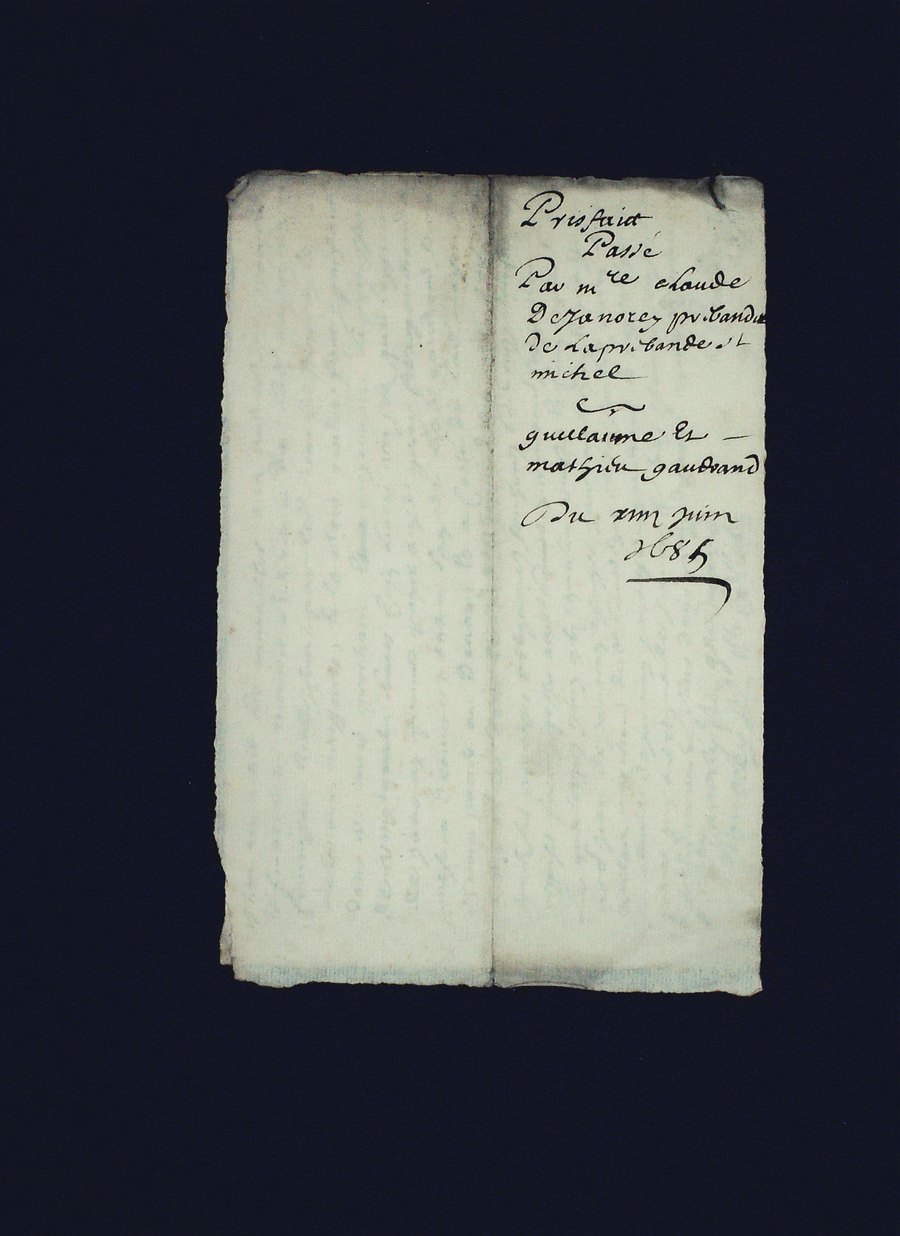 Prisfaict
Passé
Par mre claude
Dejanorey prebandier
de La prebande st
michel
guillaume Et
mathieu gaudrand
Du xiiii juin
1685